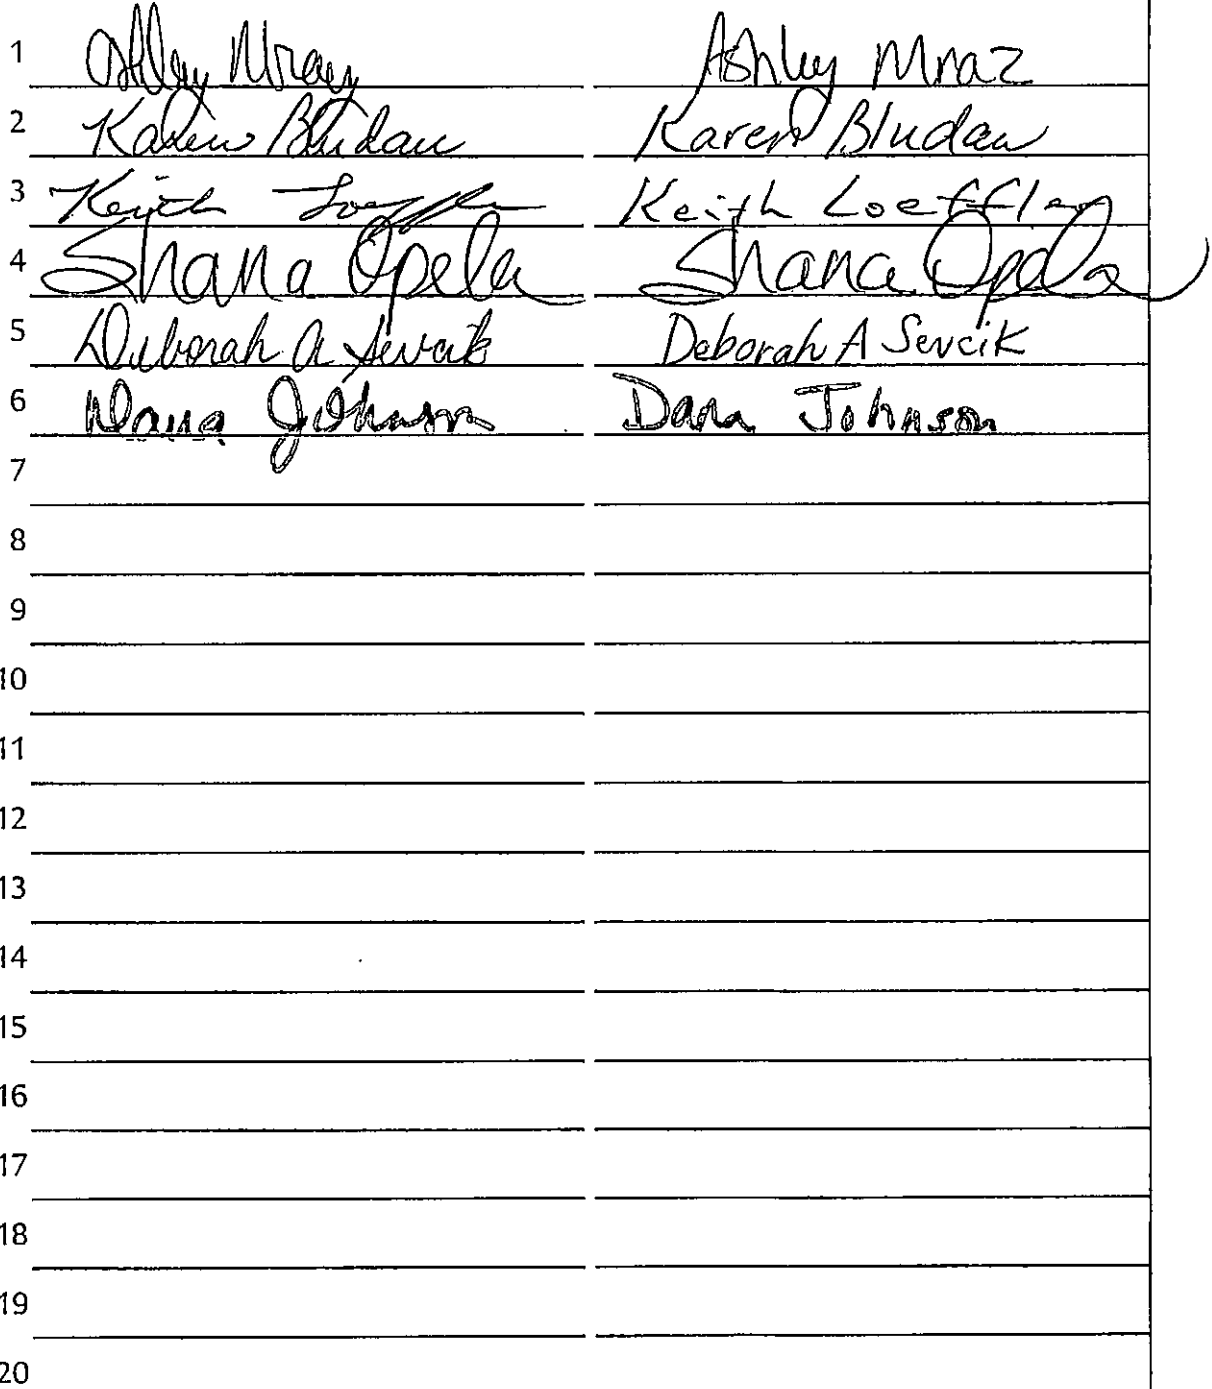 1 Ashley Mraz Ashley Mraz
2 Karen Bludau Karen Bludau
3 Keith Loeffler Keith Loeffler
4 Shana Opela Shana Opela
5 Deborah A Sevcik Deborah A Sevcik
6 Dana Johnson Dana Johnson
7
8
9
10
11
12
13
14
15
16
17
18
19
20